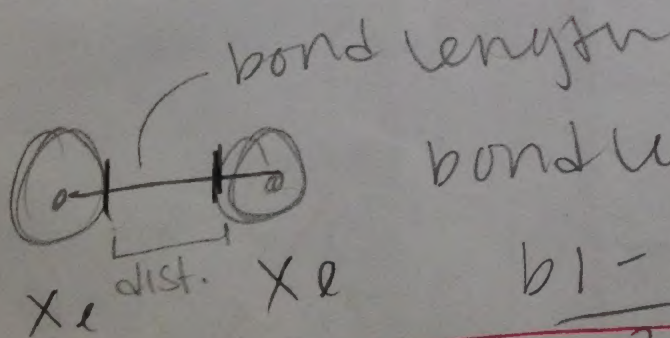 bond length
bond le
dist.
Xe
Xe
bl -